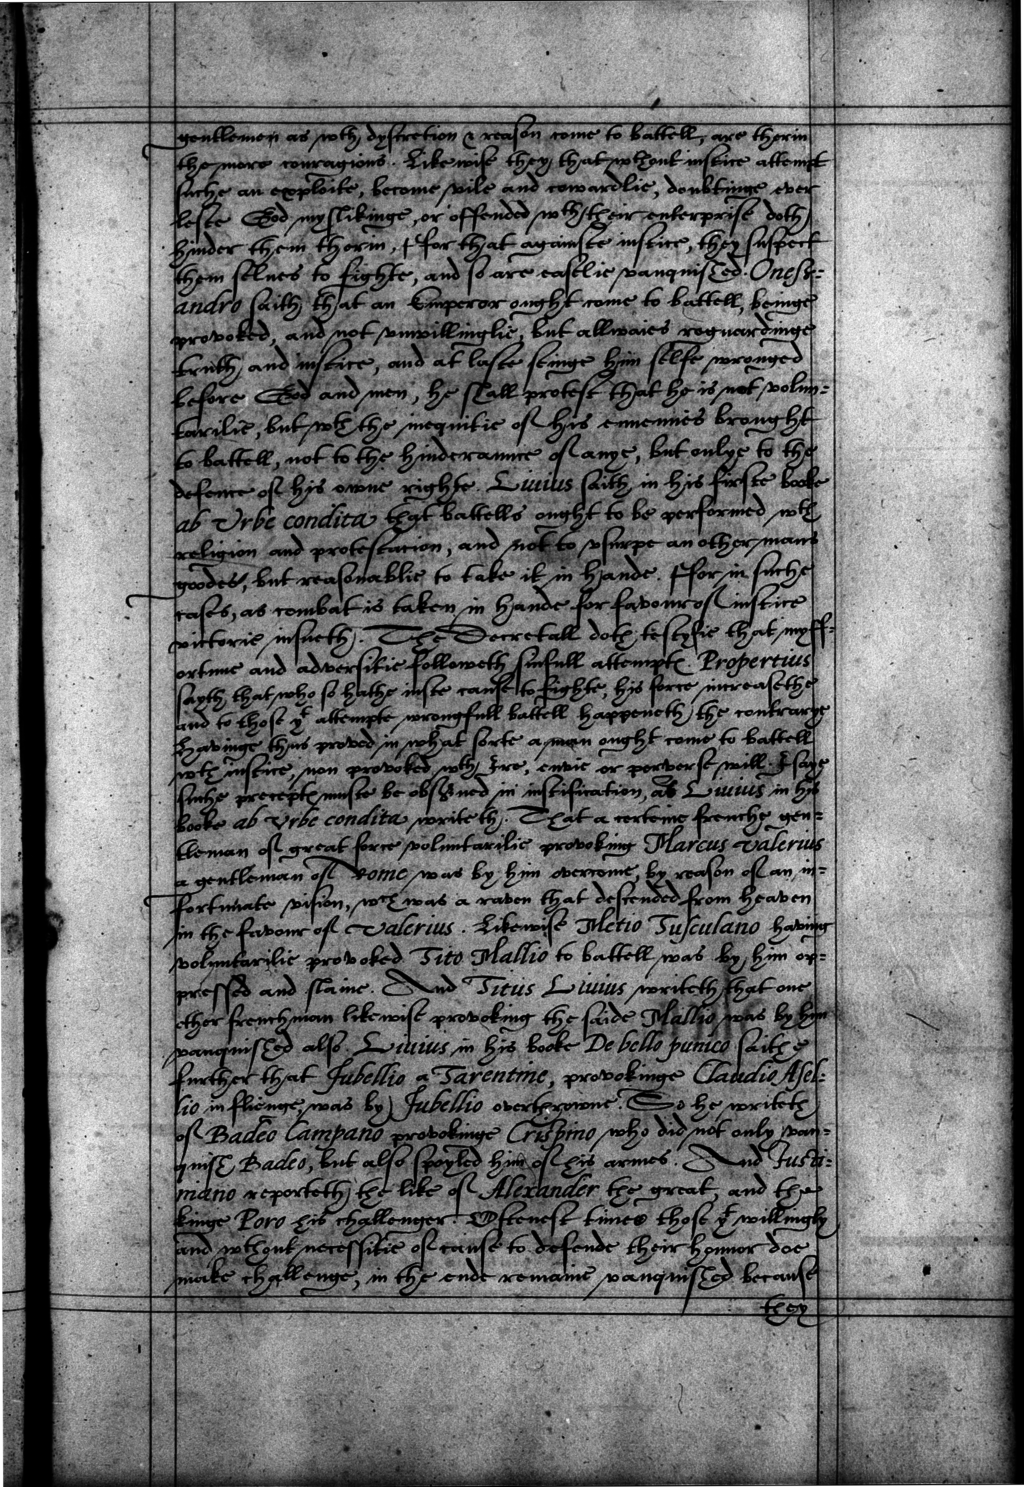 gentlemen as wth dyscretion & reason come to battell, are therin
the more couragious. Likewise they that wthout iustice attempt
suche an exploite, become vile and cowardlie, doubtinge ever
leste God myslikinge, or offended wth their enterprise doth
hinder them therin, ffor that againste iustice, they suspect
them selues to fighte, and so are easelie vanquished. Oness=
andro saith that an Emperor ought come to battell, beinge
provoked, and not vnwillinglie, but allwaies reguardinge
truth, and iustice, and at laste seinge him selfe wronged
before God and men, he shall protest that he is not volun=
tarilie, but wth the inequitie of his ennemies brought
to battell, not to the hinderaunce of anye, but onlye to the
defence of his owne righte. Liuius saith in his firste booke
ab Vrbe condita that battells ought to be performed wth
religion and protestacion, and not to vsurpe an other mans
goodes, but reasonablie to take it in hande. ffor in suche
cases, as combat is taken in hande for favour of iustice
victorie insueth. The Decretall doth testyfie that mysf=
ortune and adversitie followeth sinfull attempts. Propertius
sayth that who so hathe iuste cause to fighte, his force increasethe
and to those yt attempte wrongfull battell happeneth the contrarye
Havinge thus proved in what sorte a man ought come to battell
wth iustice, non provoked wth Ire, envie or perverse will. I saye
suche precepts muste be obserued in iustification, as Liuius in his
booke ab Vrbe condita writeth. That a certeine frenche gen=
tleman of great force voluntarilie provoking Marcus Valerius
a gentleman of Rome was by him overcome, by reason of an in=
fortunate vision, wch was a raven that descended from heaven
in the favour of Valerius. Likewise Metio Tusculano having
voluntarilie provoked Tito Mallio to battell was by him op=
pressed and slaine. And Titus Liuius writeth that one
other frenchman likewise provoking the saide Mallio was by him
vanquished also. Liuius in his booke De bello punico saithe
further that Jubellio a Tarentine, provokinge Claudio Asel=
lio in flienge, was by Jubellio overthrowne. So he writeth
of Badeo Campano provokinge Crispino who did not only van=
quish Badeo, but also spoyled him of his armes. And Justi=
niano reporteth the like of Alexander the great, and the
kinge Poro his challenger. Oftenest times those yt willingly
and wthout necessitie of cause to defende their honnor doe
make challenge, in the ende remaine vanquished because
they